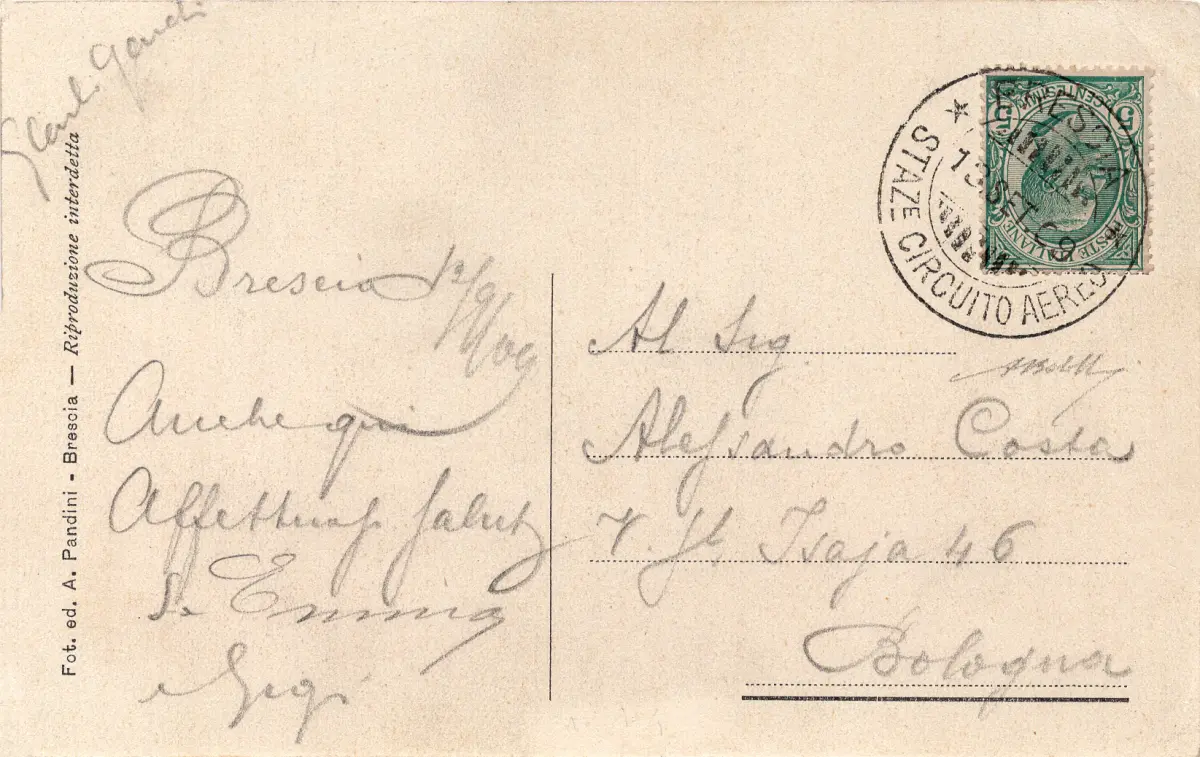 Brescia 12/9/909
Anche qui
Affettuosi saluti
da Emma
e Gigi
Al Sig.
Alessandro Costa
V. St. Isaja 46
Bologna
Fot. ed. A. Pandini - Brescia — Riproduzione interdetta
BRESCIA
13 SET 09
STAZE CIRCUITO AEREO
CENTESIMI
5 5
POSTE ITALIANE